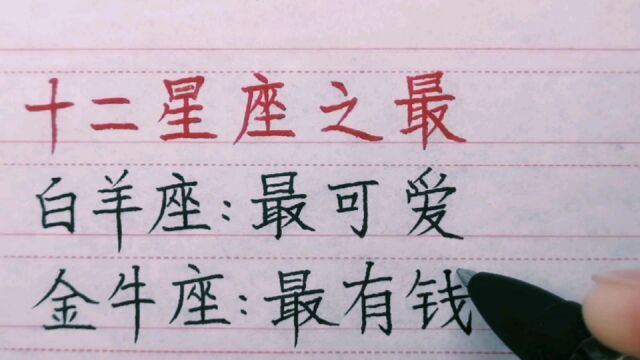 十二星座之最
白羊座:最可爱
金牛座:最有钱